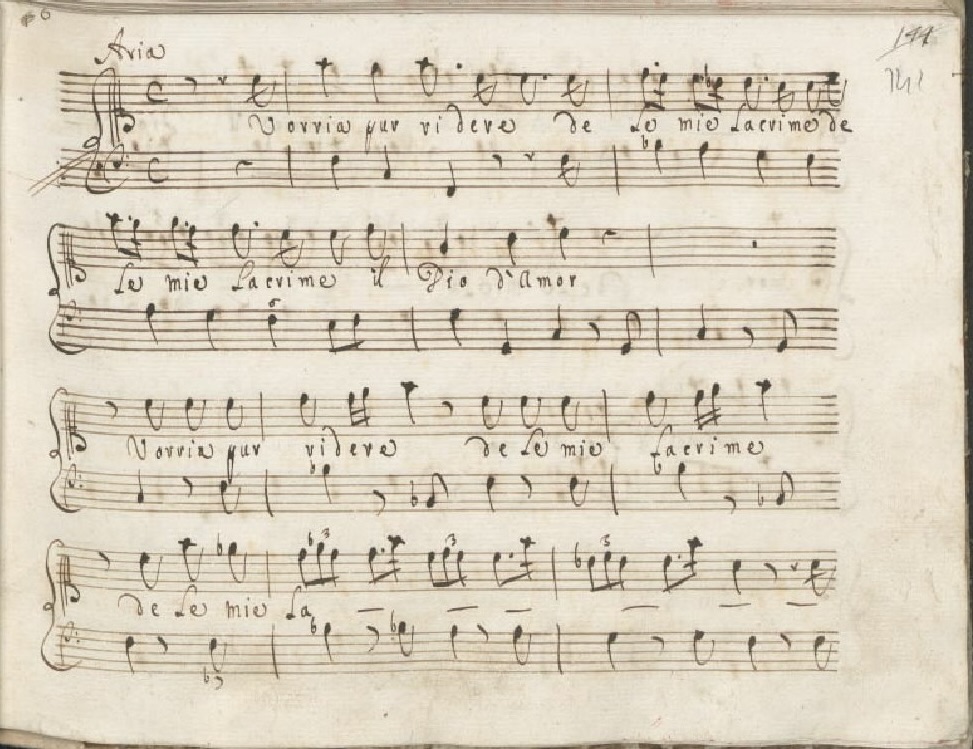 6
144
Aria
141
Vorria pur ridere de le mie lacrime de
le mie lacrime il Dio d'Amor
6
Vorria pur ridere de le mie lacrime
3 3 3
de le mie la